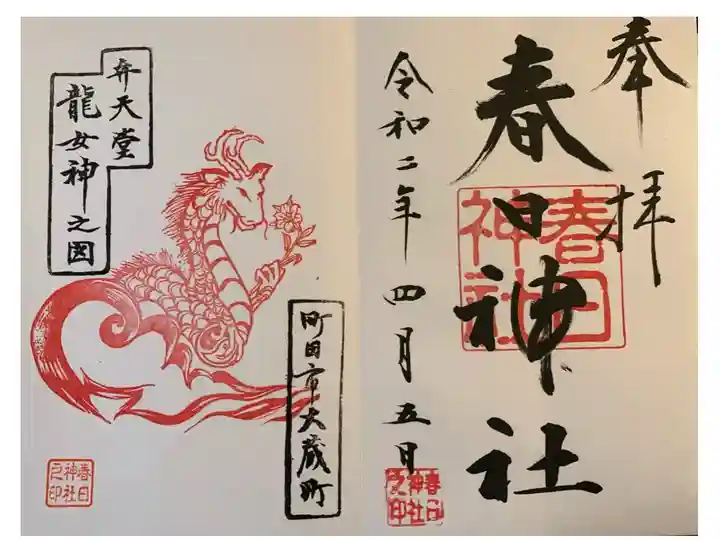 奉拝
春日神社
春日
神社
令和二年四月五日
春日
神社
之印
弁天堂
龍女神之図
町田市大蔵町
春日
神社
之印